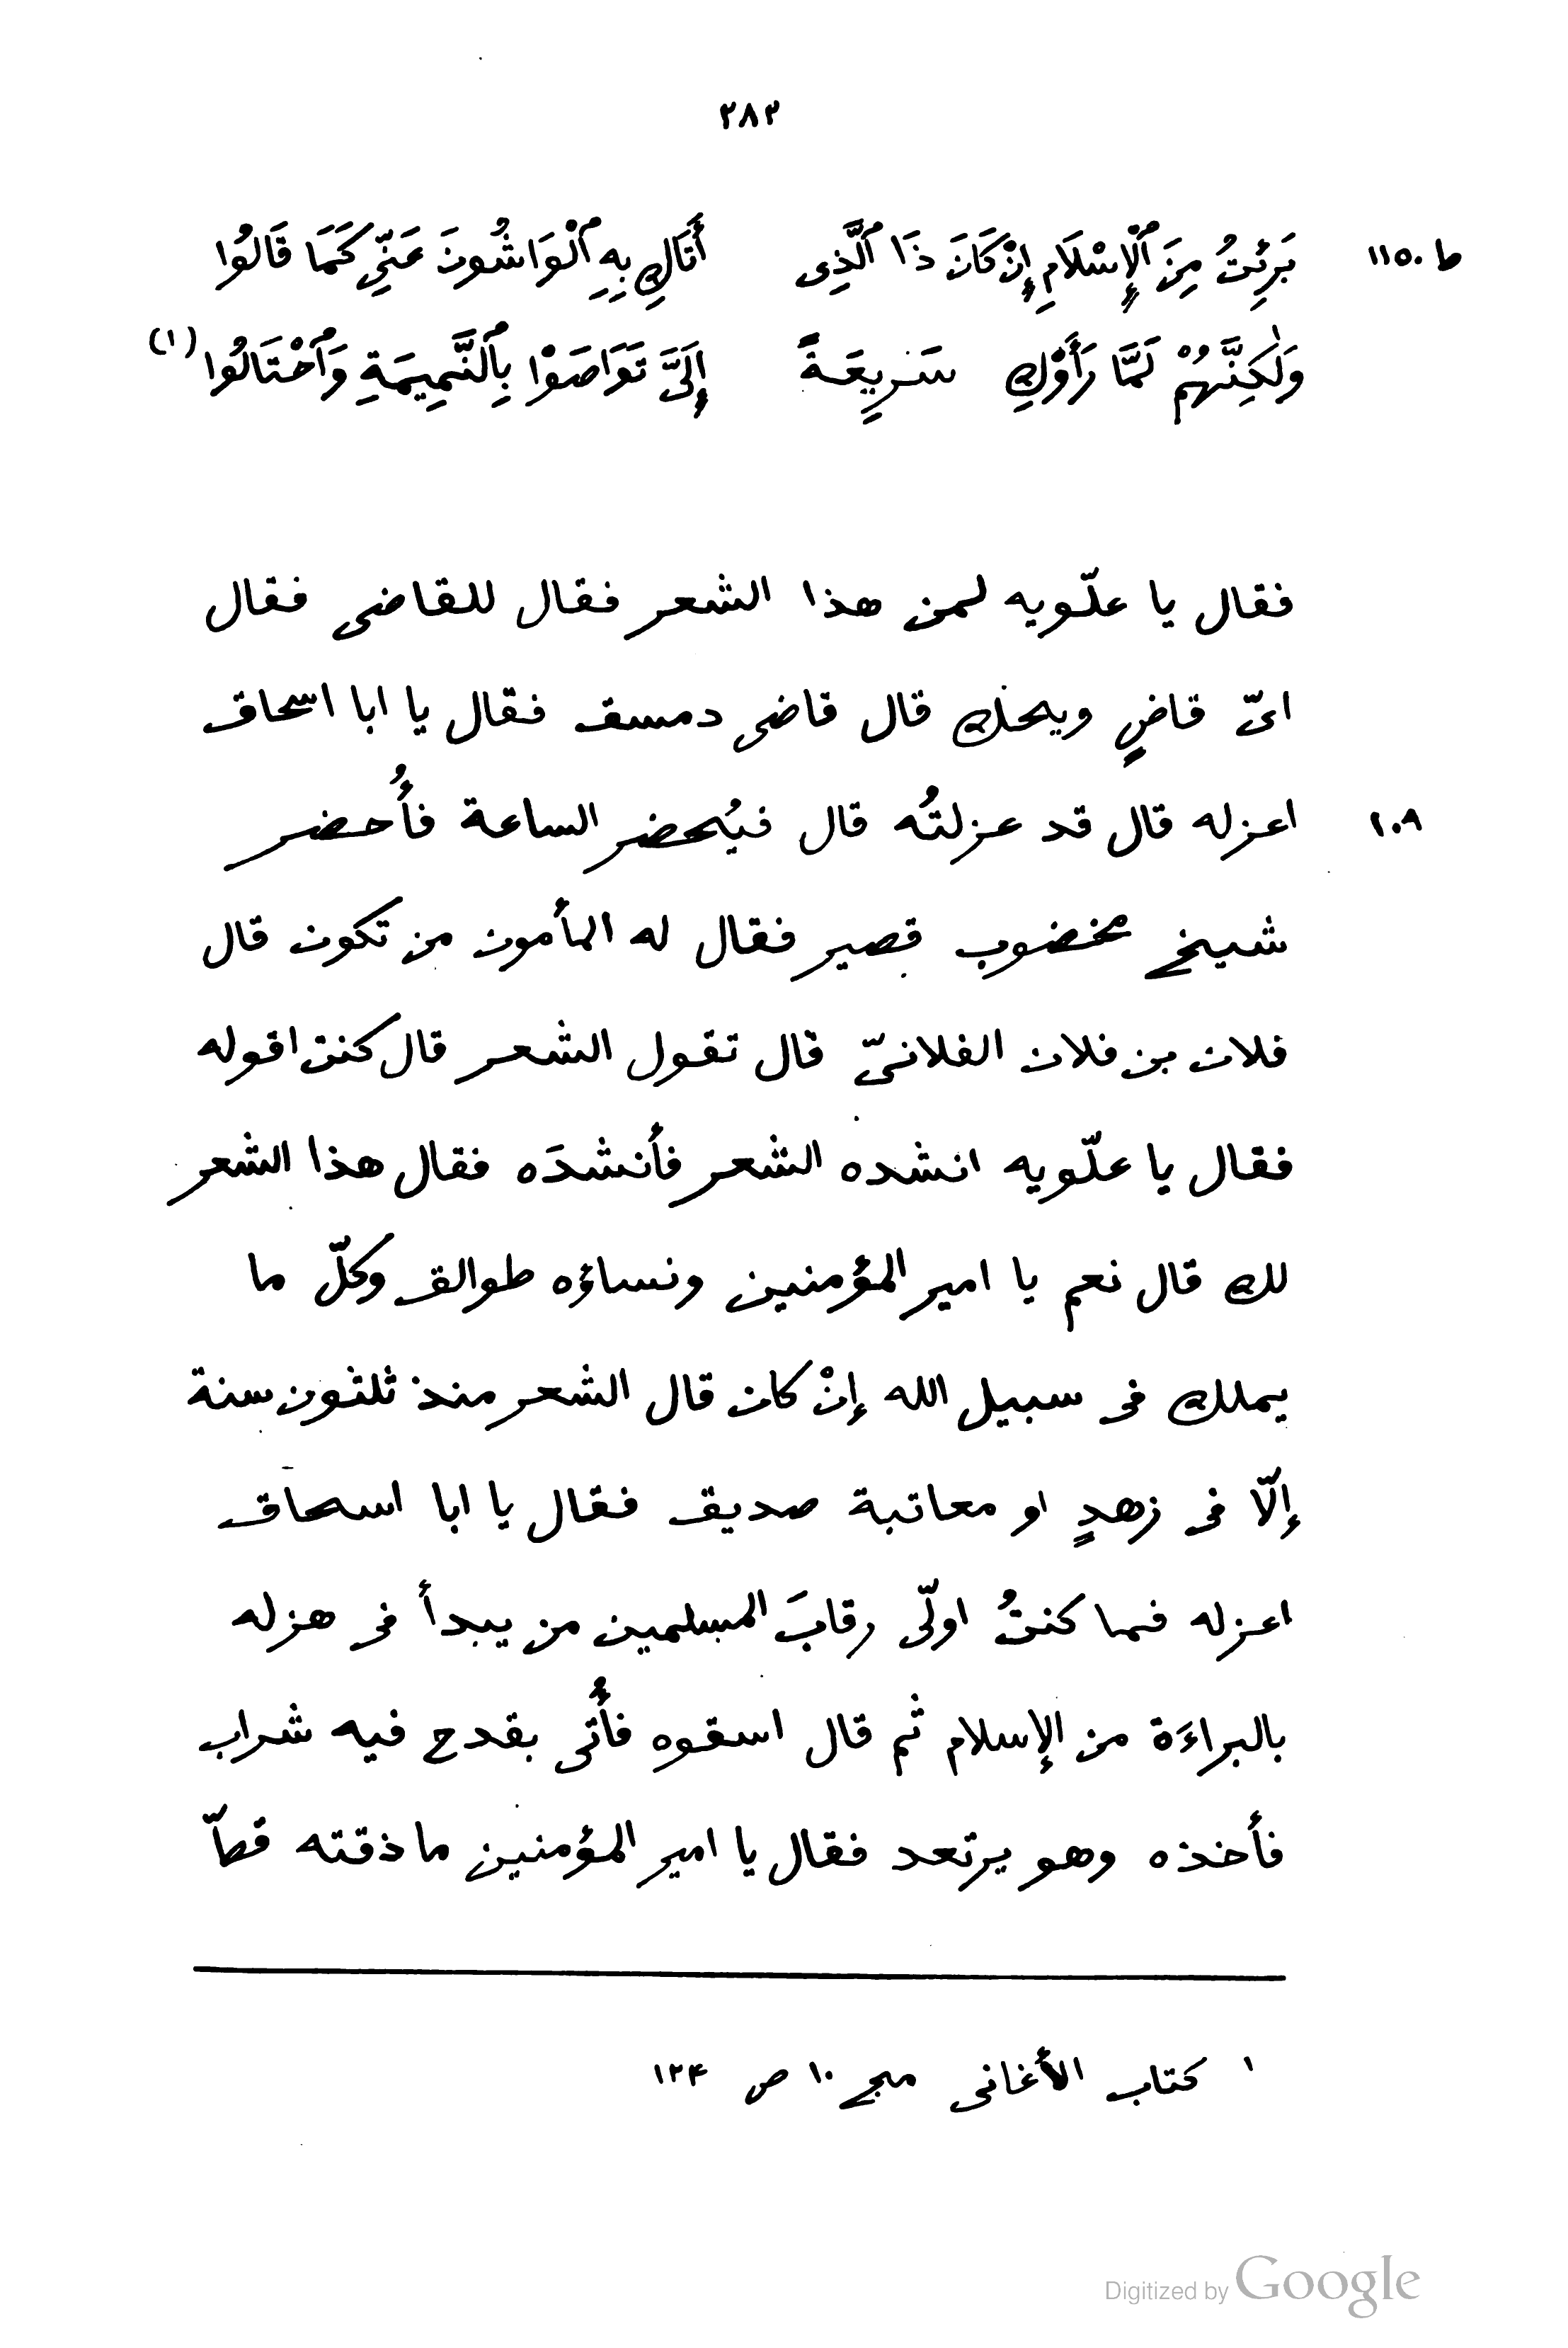 ٢٨٢
ط ١١٥٠ بَرِئْتُ مِنَ ٱلْإِسْلَامِ إِنْ كَانَ ذَا ٱلَّذِى أَتَاكِ بِهِ ٱلْوَاشُونَ عَنِّى كَمَا قَالُوا
وَلٰكِنَّهُمْ لَمَّا رَأَوْكِ سَرِيعَةً إِلَىَّ تَوَاصَوْا بِٱلنَّمِيمَةِ وَٱحْتَالُوا (١)
فقال يا علّويه لمن هذا الشعر فقال للقاضى فقال
اىّ قاضٍ ويحك قال قاضى دمسق فقال يا ابا اسحاق
١٠٩ اعزله قال قد عزلتُه قال فيُحضر الساعة فأُحضر
شيخ مخضوب قصير فقال له المأمون من تكون قال
فلان بن فلان الفلانىّ قال تقول الشعر قال كنت اقوله
فقال يا علّويه انشده الشعر فأنشدَه فقال هذا الشعر
لك قال نعم يا امير المؤمنين ونساؤه طوالق وكلّ ما
يملك فى سبيل الله إنْ كان قال الشعر منذ ثلثون سنة
إلّا فى زهدٍ او معاتبة صديق فقال يا ابا اسحاق
اعزله فما كنتُ اولّى رقابَ المسلمين من يبدأ فى هزله
بالبراءَة من الإسلام ثم قال اسقوه فأُتى بقدح فيه شراب
فأخذه وهو يرتعد فقال يا امير المؤمنين ما ذقته قطّ
١ كتاب الأغانى مج ١٠ ص ١٢٤
Digitized by Google